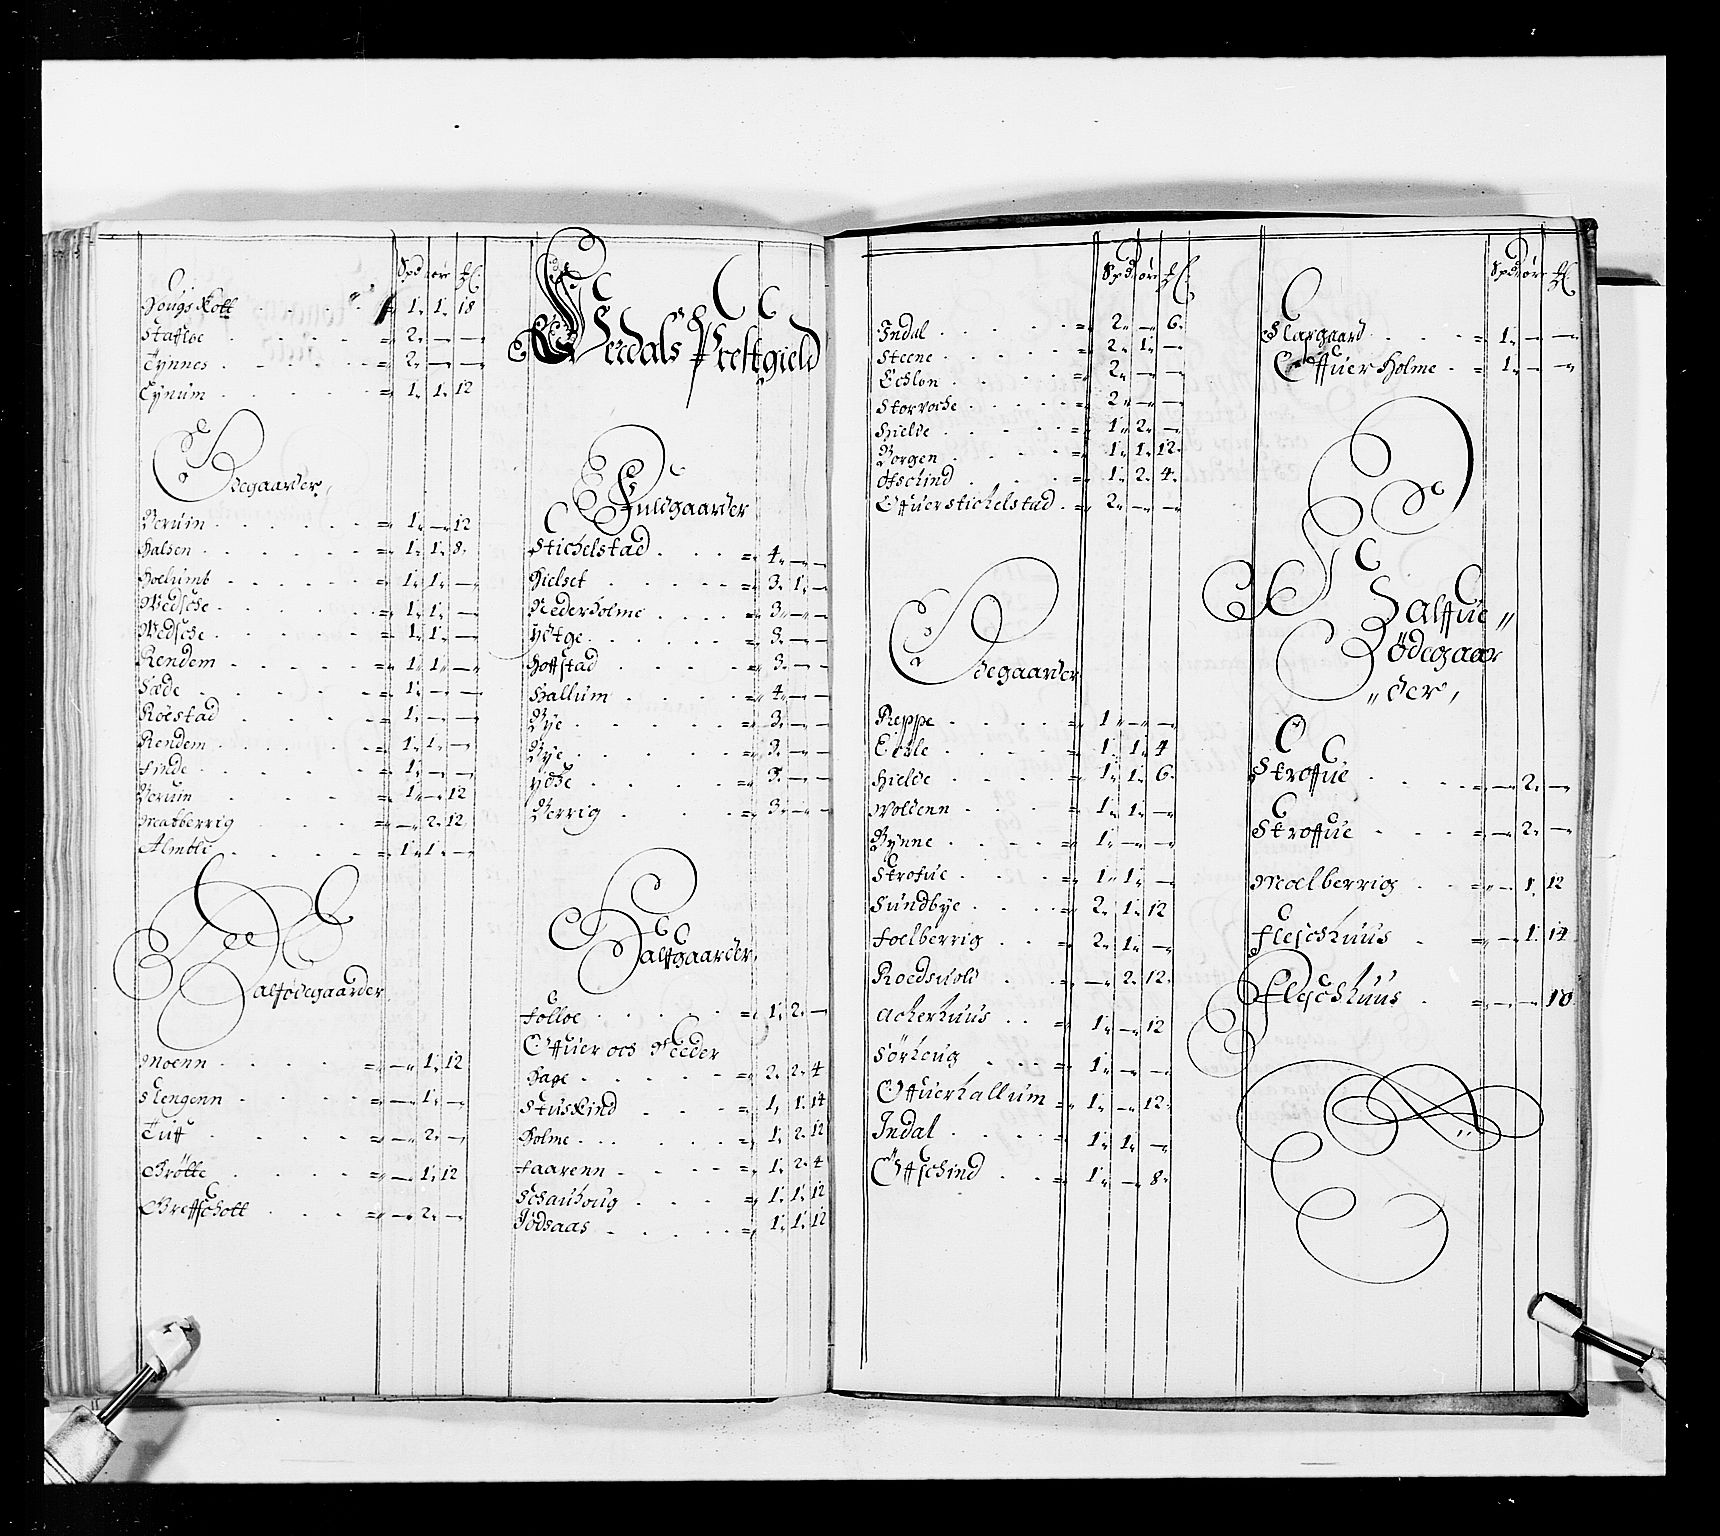 Spd ör ℔
Hougskott 1. 1. 18
Stafloe = 2. — —
Tÿnnes = 2. — —
Eÿnum = 1. 1. 12
Ödegaarder,
Beruin = 1. — 12
Halsen = 1. 1. 8.
Hoelumb = 1. 1. —
Wedsche = 1. 1. —
Wedsche = 1. 1. —
Rendem = 1. 1. —
Sæde = 1. — —
Röestad = 1. — —
Rendem = 1. 1. —
Finde = 1. — —
Beruin = 1. — 12
Marberrig = — 2. 12
Almble = 1. 1. —
Halfödegaarder
Moenn = — 1. 12
Slengenn = — 1. —
Tuff = — 2. —
Brötte = — 1. 12
Greffschott = — 2. —
Werdals Prestgield
Fuldgaarder
Stichelstad = 4. — —
Hielset = 3. 1. —
Nederholme = 3. — —
Hötge = 3. — —
Hoffstad = 3. — —
Hallum = 4. — —
Bÿe = 3. — —
Bÿe = 3. — —
Ydse = 3. — —
Berrig = 3. — —
Halfgaarder,
Folloe = 1. 2. —
Offuer och Neder
Hage = 2. 2. 4
Stuskind = 1. 1. 14
Holme = 1. 2. 12
Faarenn = 1. 2. 4
Schauhoug = 1. 1. 12
Jödsaas = 1. 1. 12
Spd ör ℔
Indal = 2. — 6.
Steene = 2. 1. —
Echlon = 2. — —
Storvoche = 2. — —
Hielde = 1. 2. —
Borgen = 1. 1. 12.
Öfschind = 1. 2. 4.
Offuerstichelstad = 2. — —
Ödegaarder
Reppe = 1. — —
Eckle = 1. 1. 4
Hielde = 1. 1. 6.
Woldenn = 1. 1. —
Bÿnne = 1. — —
Skrofue = 1. 1. —
Sundbÿe = 2. 1. 12
Foelberrig = 2. 1. —
Roedsuold = — 2. 12.
Ackerhuus = 1. — 12
Sörhoug = 1. — —
Offuerhallum = 1. — 12.
Indal = 1. 1. —
Öffschind = 1. — 8.
Spd ör ℔
Slapgaard = 1. — —
Offuer Holme = 1. — —
Halffue„
Ödegaar
„der,
Skroffue = — 2. —
Skroffue = — 2. —
Moelberrig = — 1. 12
Fleschhuus = — 1. 14
Fleschhuus = — — 18